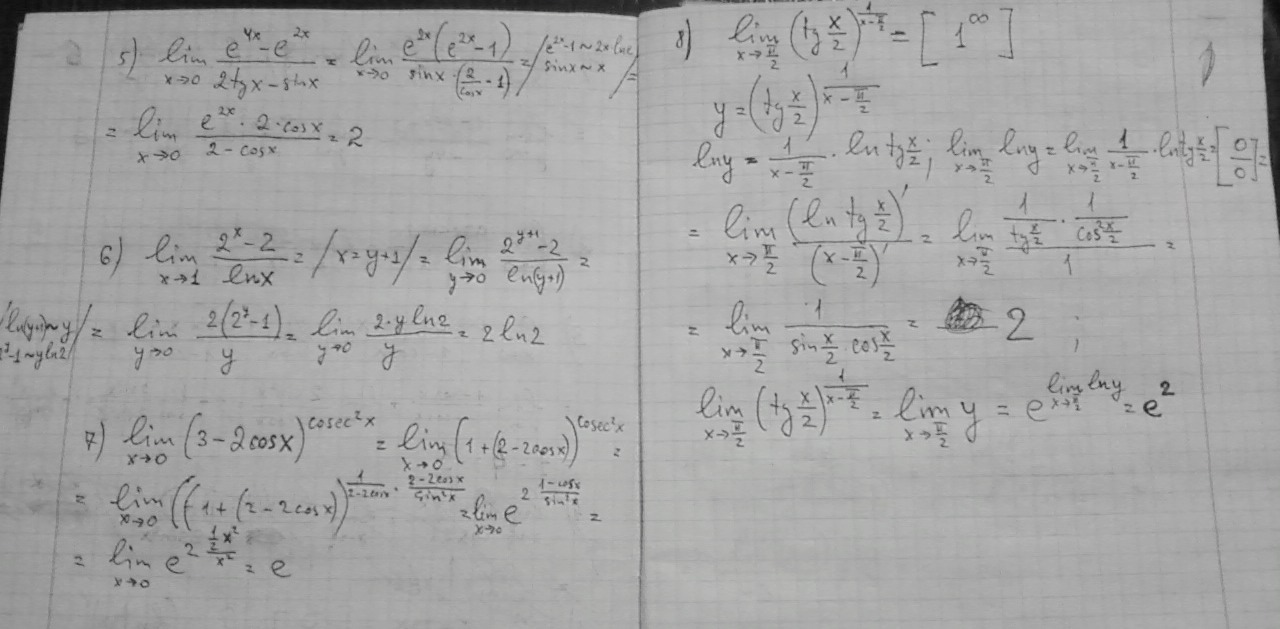 5) lim x→0 (e^{4x} - e^{2x})/(2tgx - sinx) = lim x→0 (e^{2x}(e^{2x} - 1))/(sinx · (2/cosx - 1)) = / e^{2x} - 1 ~ 2x lne sinx ~ x / =
= lim x→0 (e^{2x} · 2 · cosx)/(2 - cosx) = 2
6) lim x→1 (2^x - 2)/(lnx) = / x = y+1 / = lim y→0 (2^{y+1} - 2)/(ln(y+1)) =
/ ln(y+1) ~ y 2^y - 1 ~ yln2 / = lim y→0 (2(2^y - 1))/y = lim y→0 (2·y ln2)/y = 2 ln2
7) lim x→0 (3 - 2cosx)^{cosec²x} = lim x→0 (1 + (2 - 2cosx))^{cosec²x} =
= lim x→0 ((1 + (2 - 2cosx))^{1/(2-2cosx) · (2-2cosx)/(sin²x)} = lim x→0 e^{2 (1-cosx)/(sin²x)} =
= lim x→0 e^{2 (½x²)/(x²)} = e
8) lim x→π/2 (tg x/2)^{1/(x-π/2)} = [1^∞]
y = (tg x/2)^{1/(x - π/2)}
lny = 1/(x - π/2) · ln tg x/2; lim x→π/2 lny = lim x→π/2 1/(x-π/2) · ln tg x/2 = [0/0] =
= lim x→π/2 (ln tg x/2)'/(x - π/2)' = lim x→π/2 (1/(tg x/2) · 1/(cos² x/2))/1 =
= lim x→π/2 1/(sin x/2 cos x/2) = 2 ;
lim x→π/2 (tg x/2)^{1/(x-π/2)} = lim x→π/2 y = e^{lim x→π/2 lny} = e²